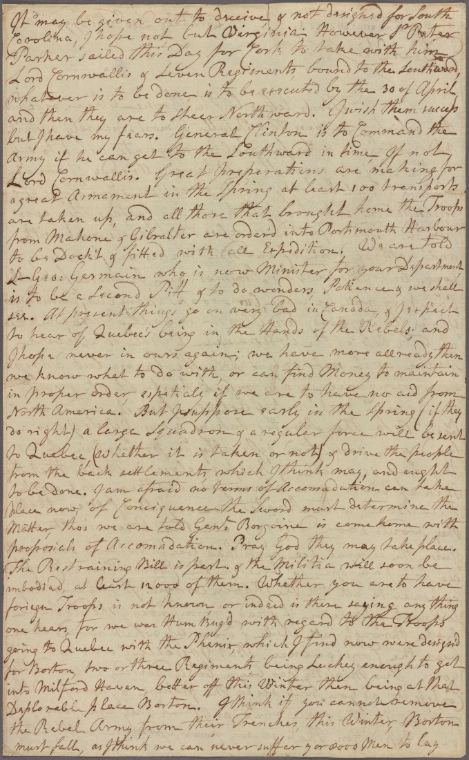 It may be given out to deceive & not designed for South
Carolina, I hope not but Virginia. However Sr. Peter
Parker sailed this Day for Cork to take with him
Lord Cornwallis & Seven Regiments bound to the Southward,
whatever is to be done is to be executed by the 30 of April
and then they are to steer Northward. I wish them success
but I have my fears. General Clinton is to Command the
Army if he can get to the Southward in time If not
Lord Cornwallis. Great preparations are making for
a great Armament in the Spring at least 100 transports
are taken up, and all those that brought home the Troops
from Mahone & Gibralter are orderd into Portsmouth Harbour
to be Dock'd & fitted with all Expedition. We are told
Ld. Geo: Germain who is now Minister for your Department
is to be a Second Pitt & to do wonders. Patience & we shall
see. At present things go on very bad in Canada, & I expect
to hear of Quebec's being in the Hands of the Rebels and
I hope never in ours again; we have more allready then
we know what to do with, or can find Money to maintain
in proper order espetialy if we are to have no aid from
North America. But I suppose early in the Spring (if they
do right) a large Squadron & a regular force will be sent
to Quebec (whether it is taken or not) & drive the people
from the back settlements, which I think may, and aught
to be done. I am afraid no terms of Accomodation can take
place now, of Consiquence the Sword must determine the
Matter thos we are told Genl. Borgoine is come home with
proposials of Accomadation. Pray God they may take place.
The Restraining Bill is part, & the Militia will soon be
embodied at least 12000 of them. Whether you are to have
foriegn Troops is not known or indeed is there saying any thing
one hears, for we was Hum Bug'd with regard to the Troops
going to Quebec with the Phenix, which I find now were designed
for Boston two or three Regiments being Luckey enough to get
into Milford Haven better off this Winter then being at that
Deplorable place Boston. I think if you cannot remove
the Rebel Army from their Trenches this Winter, Boston
must fall, as I think we can never suffer 9 or 8000 Men to lay